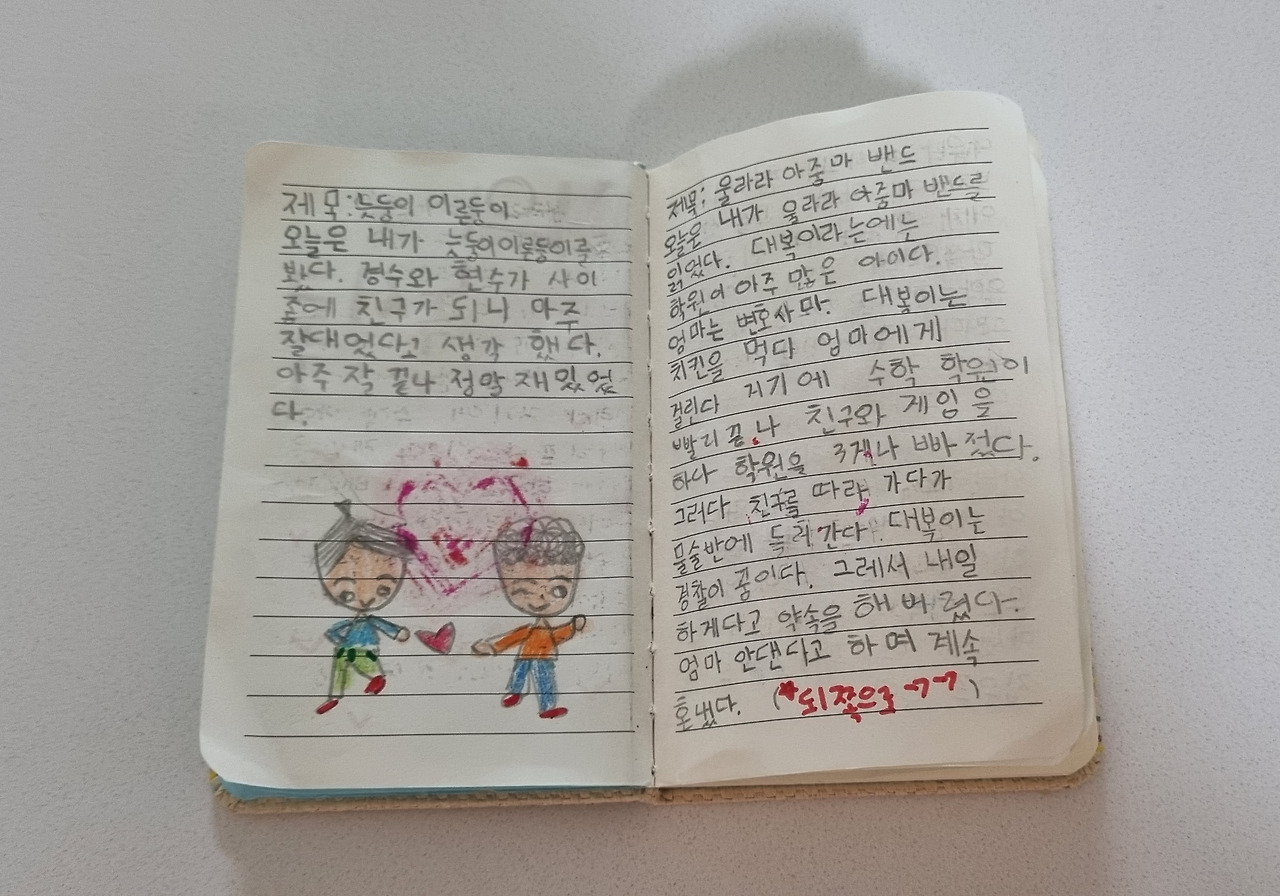 제목: 늦둥이 이른둥이
오늘은 내가 늦둥이이른둥이를
봤다. 경수와 현수가 사이
좋에 친구가 되니 아주
잘대었다고 생각 했다.
아주 잘 끝나 정말 재밌었
다.
제목: 울라라 아줌마 밴드
오늘은 내가 울라라 아줌마 밴드를
읽었다. 대복이라는에는
학원이 아주 많은 아이다.
엄마는 변호사다. 대복이는
치킨을 먹다 엄마에게
걸린다 저기에 수학 학원이
빨리 끝나 친구와 게임을
하다 학원을 3게나 빠젔다.
그러다 친구를 따라 가다가
물술반에 들러간다. 대복이는
경찰이 꿈이다. 그레서 내일
하게다고 약속을 해버렸다.
엄마 안댄다고 하며 계속
혼냈다. (*뒤쪽으로→→)